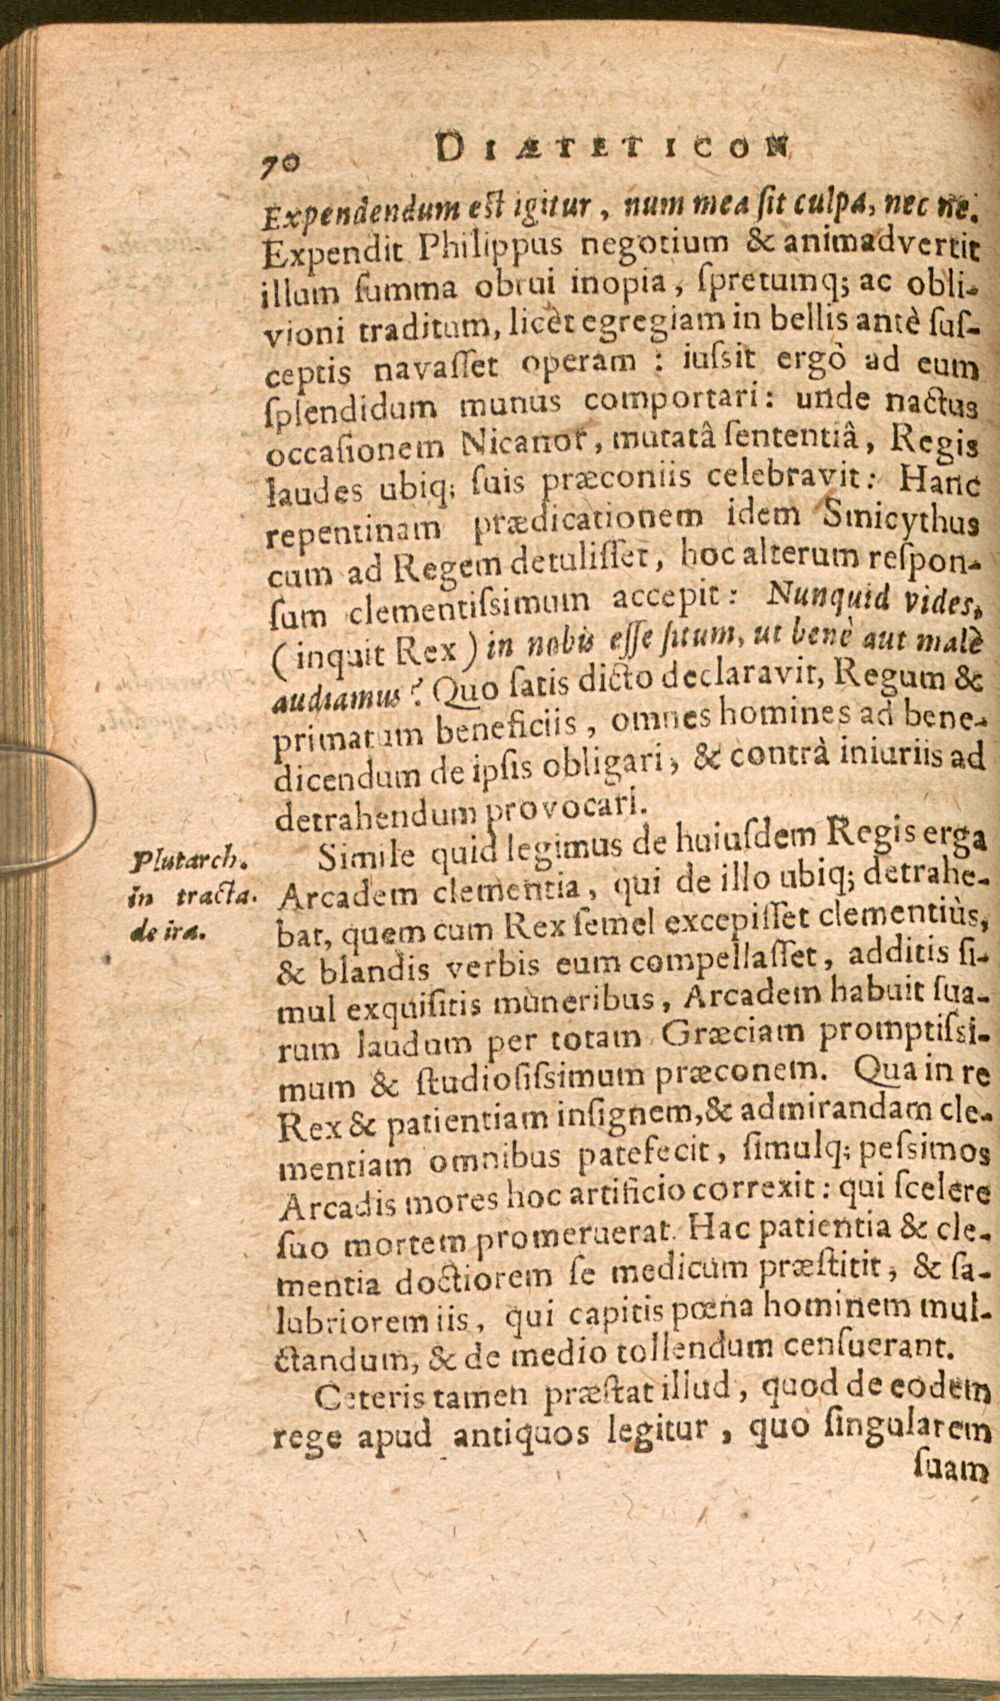 70 DIÆTETICON
Expendendum est igitur, num mea ſit culpa, nec ne.
Expendit Philippus negotium & animadvertit
illum ſumma obrui inopia, ſpretumq; ac obli-
vioni traditum, licèt egregiam in bellis antè ſuſ-
ceptis navaſſet operam : iuſsit ergò ad eum
ſplendidum munus comportari: unde nactus
occaſionem Nicanor, mutatâ ſententiâ, Regis
laudes ubiq; ſuis præconiis celebravit: Hanc
repentinam prædicationem idem Smicythus
cum ad Regem detuliſſet, hoc alterum reſpon-
ſum clementiſsimum accepit: Nunquid vides,
(inquit Rex) in nobis eſſe ſitum, ut benè aut malè
audiamus? Quo ſatis dicto declaravit, Regum &
primatum beneficiis, omnes homines ad bene-
dicendum de ipſis obligari, & contrà iniuriis ad
detrahendum provocari.
Simile quid legimus de huiuſdem Regis erga
Plutarch.
in tracta.
de ira.
Arcadem clementia, qui de illo ubiq; detrahe-
bat, quem cum Rex ſemel excepiſſet clementiùs,
& blandis verbis eum compellaſſet, additis ſi-
mul exquiſitis muneribus, Arcadem habuit ſua-
rum laudum per totam Græciam promptiſsi-
mum & ſtudioſiſsimum præconem. Qua in re
Rex & patientiam inſignem, & admirandam cle-
mentiam omnibus patefecit, ſimulq; peſsimos
Arcadis mores hoc artificio correxit: qui ſcelere
ſuo mortem promeruerat. Hac patientia & cle-
mentia doctiorem ſe medicum præſtitit, & ſa-
lubriorem iis, qui capitis pœna hominem mul-
ctandum, & de medio tollendum cenſuerant.
Ceteris tamen præſtat illud, quod de eodem
rege apud antiquos legitur, quo ſingularem
ſuam